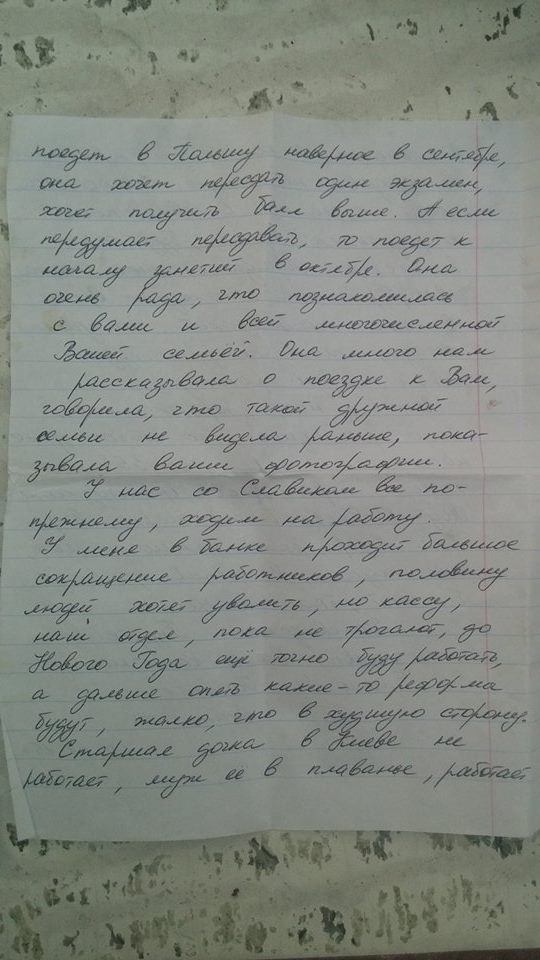 поедет в Польшу наверное в сентябре,
она хочет пересдать один экзамен,
хочет получить балл выше. А если
передумает пересдавать, то поедет к
началу занятий в октябре. Она
очень рада, что познакомилась
с вами и всей многочисленной
Вашей семьёй. Она много нам
рассказывала о поездке к Вам,
говорила, что такой дружной
семьи не видела раньше, пока-
зывала ваши фотографии.
У нас со Славиком все по-
прежнему, ходим на работу.
У меня в банке проходит большое
сокращение работников, половину
людей хотят уволить, но кассу,
наш отдел, пока не трогают, до
Нового Года ещё точно буду работать,
а дальше опять какие-то реформа
будут, жалко, что в худшую сторону.
Старшая дочка в Киеве не
работает, муж её в плаванье, работает